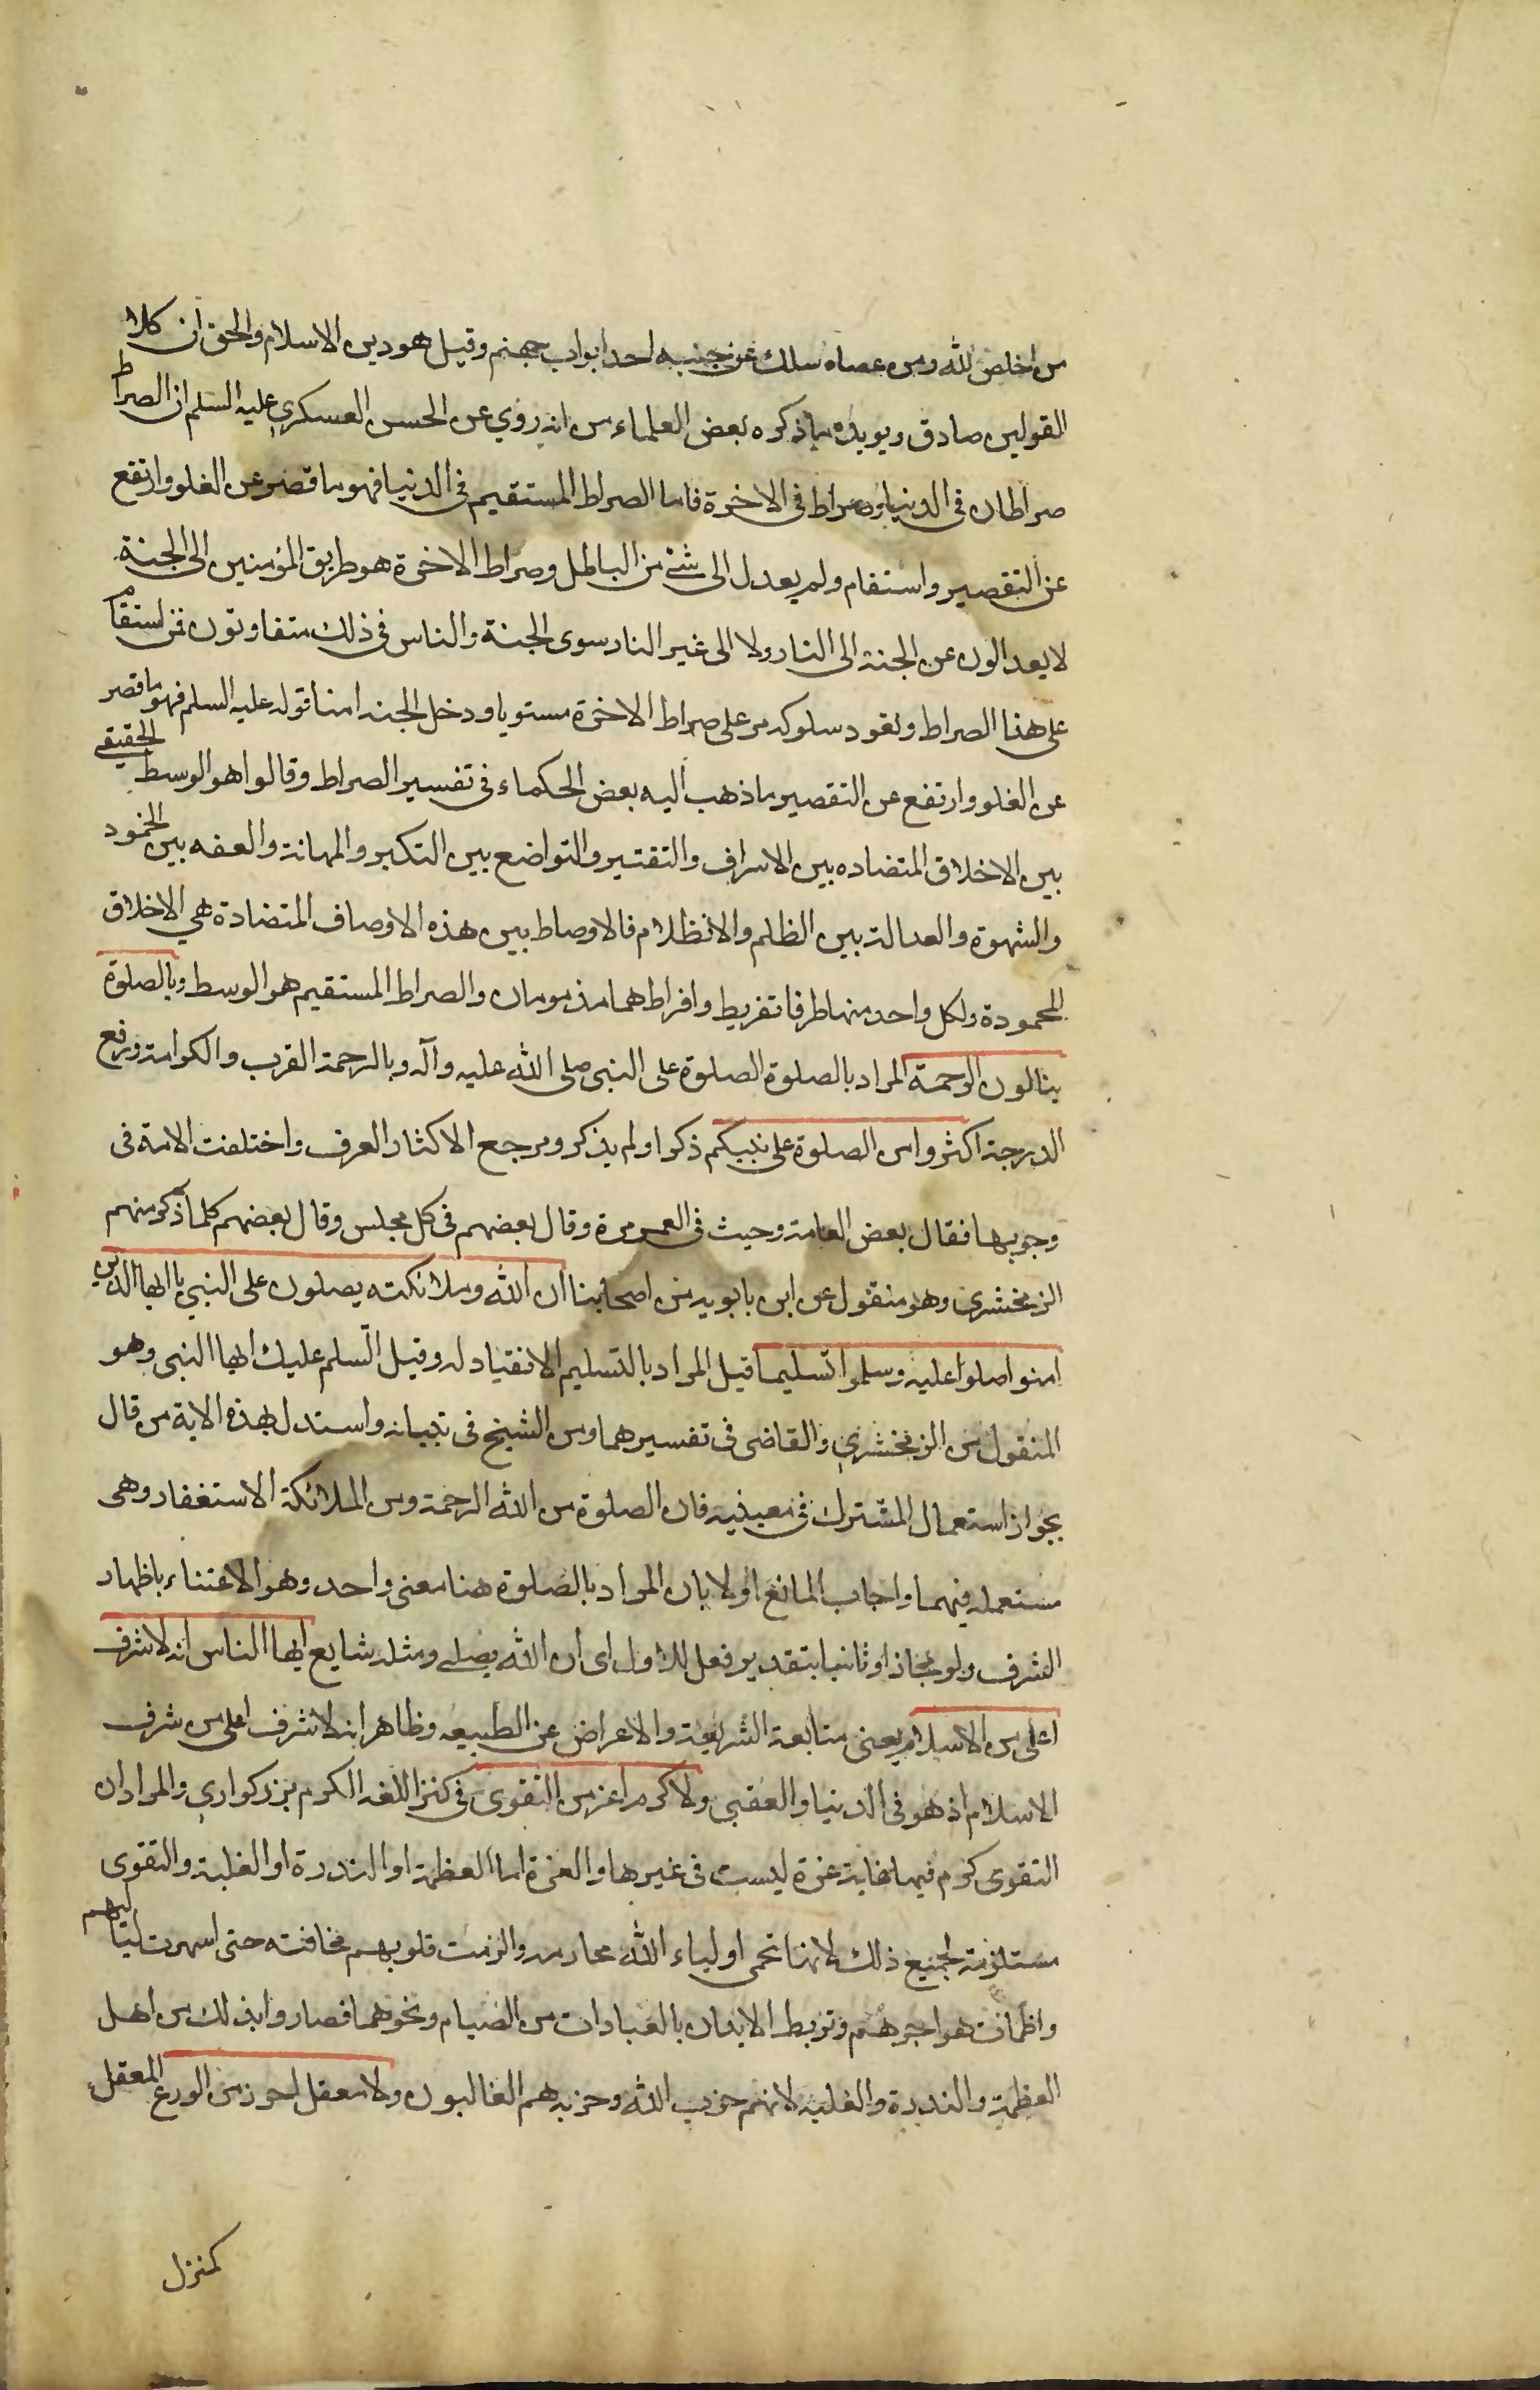 من اخلص لله ومن عصاه سلك عن جنبيه احد ابواب جهنم وقيل هو دين الاسلام والحق ان كلا
القولين صادق ويويده ما ذكره بعض العلماء من انه روي عن الحسن العسكري عليه السلم ان الصراط
صراطان في الدنيا وصراط في الاخرة فاما الصراط المستقيم في الدنيا فهو ما قصر عن الغلو وارتفع
عن التقصير واستقام ولم يعدل الى شئ من الباطل وصراط الاخرة هو طريق المؤمنين الى الجنة
لا يعدالون عن الجنة الى النار ولا الى غير النار سوى الجنة والناس في ذلك متفاوتون فمن استقام
على هذا الصراط وتعود سلوكه مر على صراط الاخرة مستويا ودخل الجنه امنا قوله عليه السلم فهو ما قصر
عن الغلو وارتفع عن التقصير ما ذهب اليه بعض الحكماء في تفسير الصراط وقالوا هو الوسط الحقيقي
بين الاخلاق المتضاده بين الاسراف والتقتير والتواضع بين التكبر والمهانة والعفه بين الخمود
والشهوة والعدالة بين الظلم والانظلام فالاوصاط بين هذه الاوصاف المتضادة هي الاخلاق
المحمودة ولكل واحد منها طرفا تفريط وافراط هما مذمومان والصراط المستقيم هو الوسط وبالصلوة
ينالون الرحمة المراد بالصلوة الصلوة على النبى صلى الله عليه وآله وبالرحمة القرب والكرامة ورفع
الدرجة اكثروا من الصلوة على نبيكم ذكر او لم يذكر ومرجع الاكثار العرف واختلفت الامة في
وجوبها فقال بعض العامة وحيث في العمر مرة وقال بعضهم في كل مجلس وقال بعضهم كلما ذكر منهم
الزمخشري وهو منقول عن ابن بابويه من اصحابنا ان الله وملائكته يصلون على النبي يا ايها الذين
امنوا صلوا عليه وسلموا تسليما قيل المراد بالتسليم الانقياد له وقيل السلم عليك ايها النبى وهو
المنقول من الزمخشري والقاضى في تفسيرهما ومن الشيخ في تبيانه واستدل بهذه الاية من قال
بجواز استعمال المشترك في معينيه فان الصلوة من الله الرحمة ومن الملائكة الاستغفار وهى
مستعمله فيهما واجاب المانع اولا بان المراد بالصلوة هنا معنى واحد وهو الاعتناء باظهار
الشرف ولو مجازا وثانيا بتقدير فعل للاول اى ان الله يصلي ومثله شايع ايها الناس انه لا شرف
اعلى من الاسلام يعنى متابعة الشريعة والاعراض عن الطبيعه وظاهر انه لا شرف اعلى من شرف
الاسلام اذ هو في الدنيا والعقبى ولا كرم اعز من التقوى في كنز اللغه الكرم بزركواري والمراد ان
التقوى كرم فيها نهاية عزة ليست في غيرها والعزة اما العظمة او الندرة او الغلبة والتقوى
مستلزمة لجميع ذلك لانها تحمى اولياء الله محارمه والزمت قلوبهم مخافته حتى اسهرت لياليهم
واظمات هواجرهم وتربط الابدان بالعبادات من الصيام ونحوهما فصاروا بذلك من اهل
العظمة والندرة والغلبه لانهم حزب الله وحزبه هم الغالبون ولا معقل احرز من الورع المعقل
كمنزل